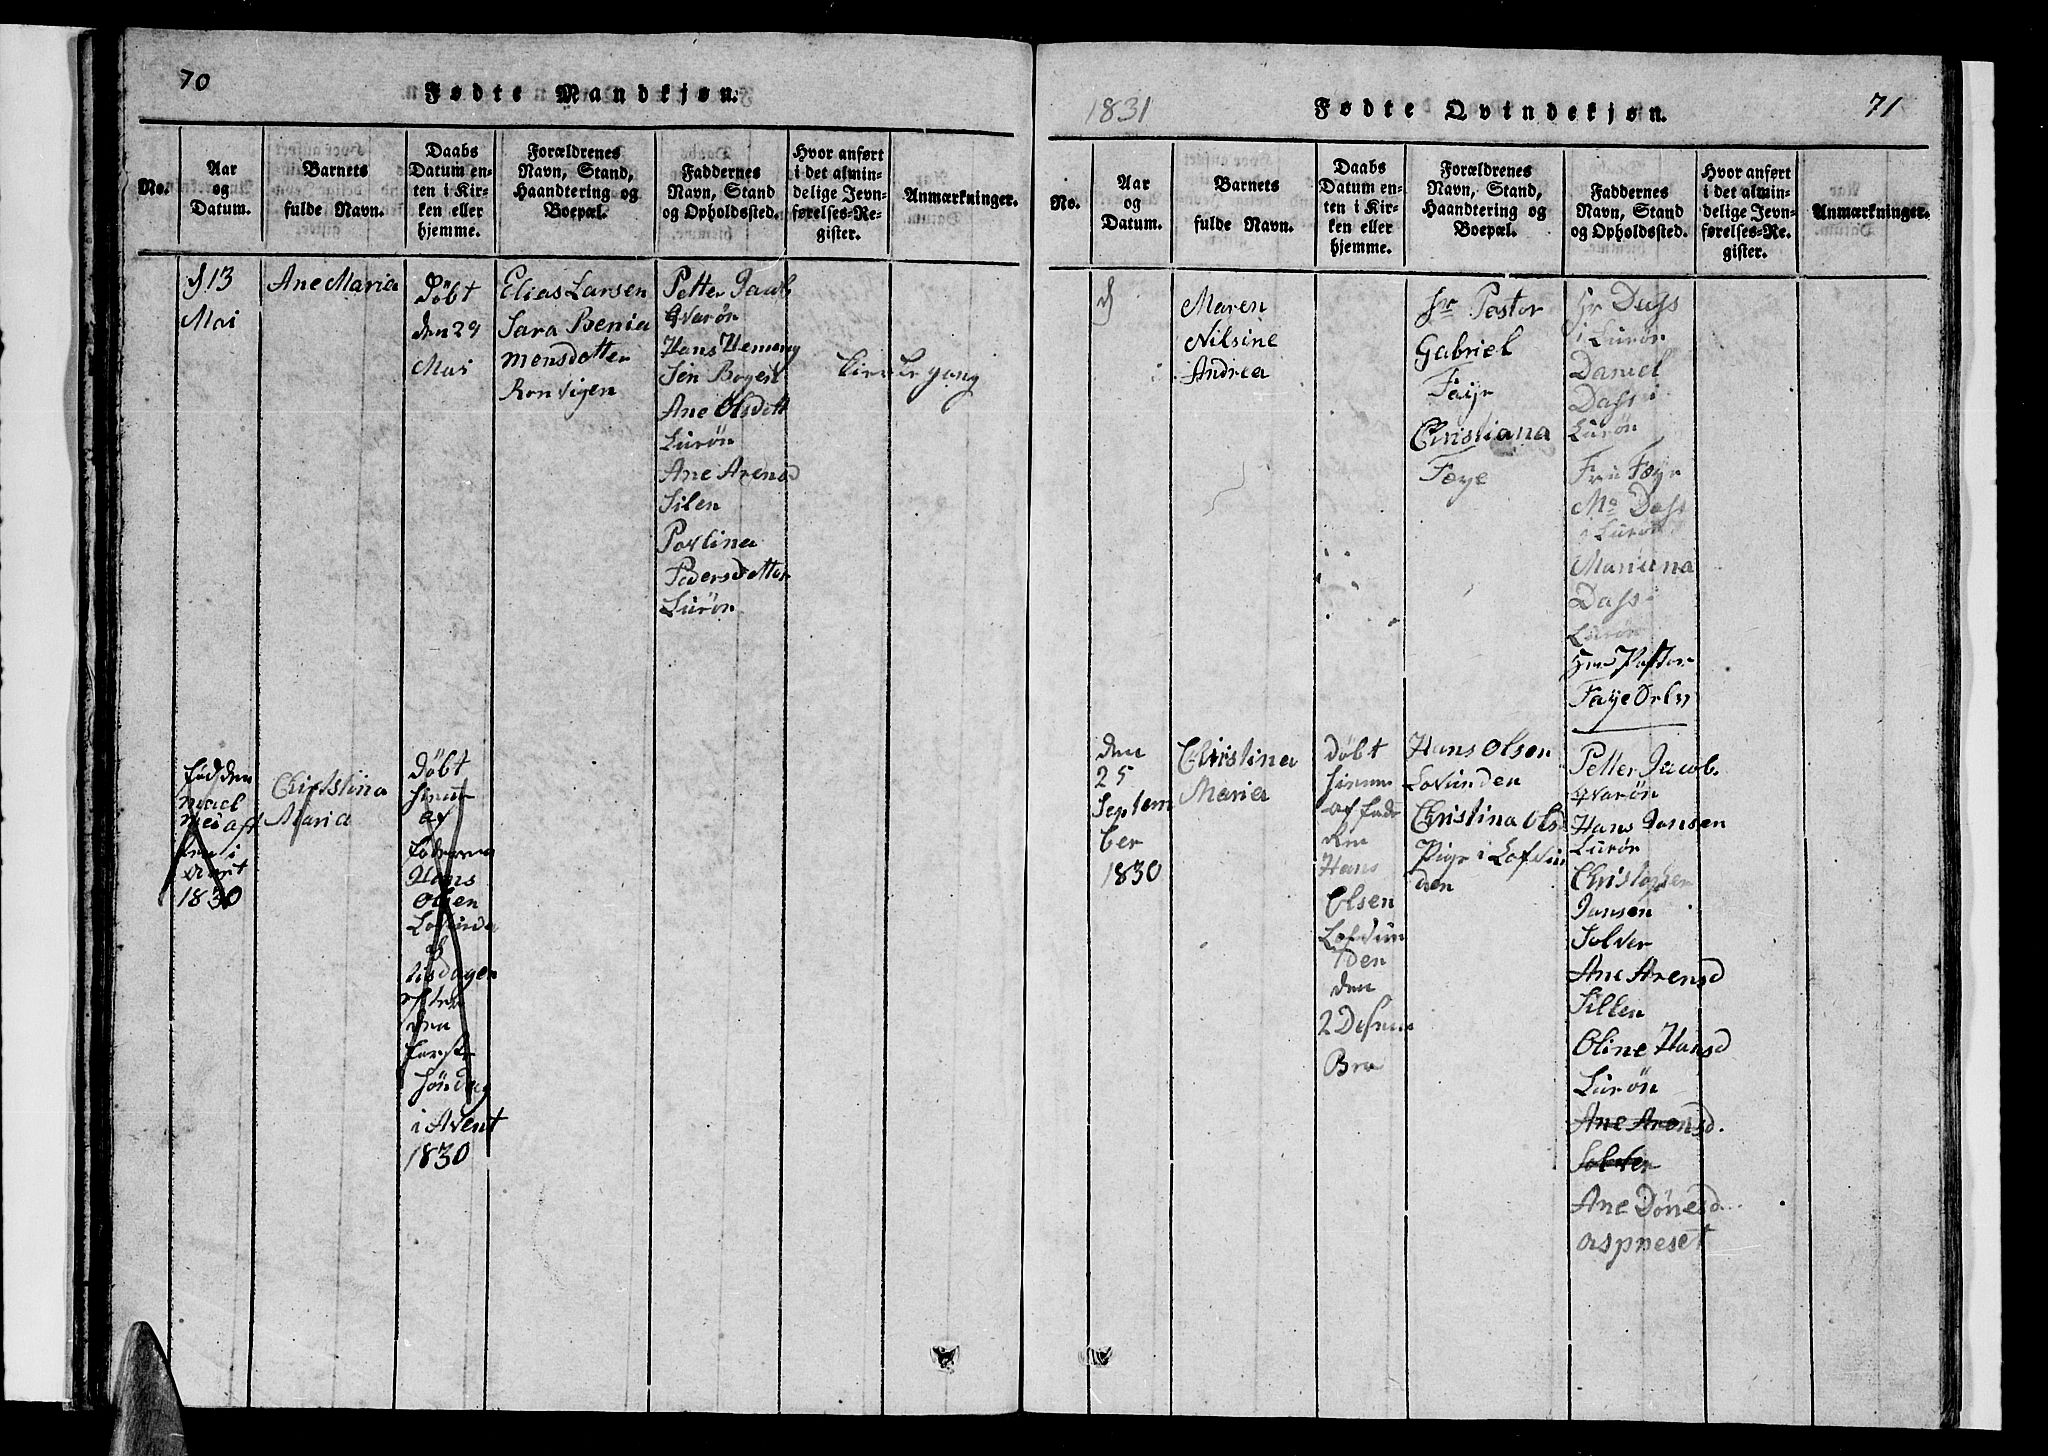 70
Fødte Mandkjøn.
No.
Aar
og
Datum.
Barnets
fulde Navn.
Daabs
Datum en-
ten i Kir-
ken eller
hjemme.
Forældrenes
Navn, Stand,
Haandtering og
Boepæl.
Faddernes
Navn, Stand
og Opholdssted.
Hvor anført
i det almin-
delige Jevn-
førelses-Re-
gister.
Anmærkninger.
13
Mai
Ane Maria
Döbt
den 29
Mai
Elias Larsen
Sara Benia
Monsdotter
Ronvigen
Petter Jacob
Qvarön
Hans Heming
Sen Bogen
Ane Olsdott
Lurön
Ane Arensd
Silen
Povlina
Pedersdotter
Lurön
Kirke gang
fød den
1830
Christina
Maria
Döbt
af
Hans
Olsen
Lovunde
tisdagen
efter
den
første
söndag
i Avent
1830
1831
Fødte Qvindekjøn.
71
No.
Aar
og
Datum.
Barnets
fulde Navn.
Daabs
Datum en-
ten i Kir-
ken eller
hjemme.
Forældrenes
Navn, Stand,
Haandtering og
Boepæl.
Faddernes
Navn, Stand
og Opholdssted.
Hvor anført
i det almin-
delige Jevn-
førelses-Re-
gister.
Anmærkninger.
Maren
Nilsine
Andrea
Hr Pastor
Gabriel
Faye
Christiana
Faye
Hr Dass
i Lurön
Daniel
Dass i
Lurön
Fru Faye
Ma Dass
i Lurön
Mariana
Dass i
Lurön
Hr Pastor
Faye
den
25
Septem
ber
1830
Christina
Maria
Döbt
hieme
af fade
ren
Hans
Olsen
Lofvun
den
den
2 Desem
Bre
Hans Olsen
Lovunden
Christina Olsd
Pige i Lofvun
den
Petter Jacob.
Qvarön
Hans Jansen
Lurön
Christopher
Jansen
Solver
Ane Arensd
Sillen
Oline Hansd
Lurön
Ane Arensd.
Solver
Ane Dönesd
aspneset